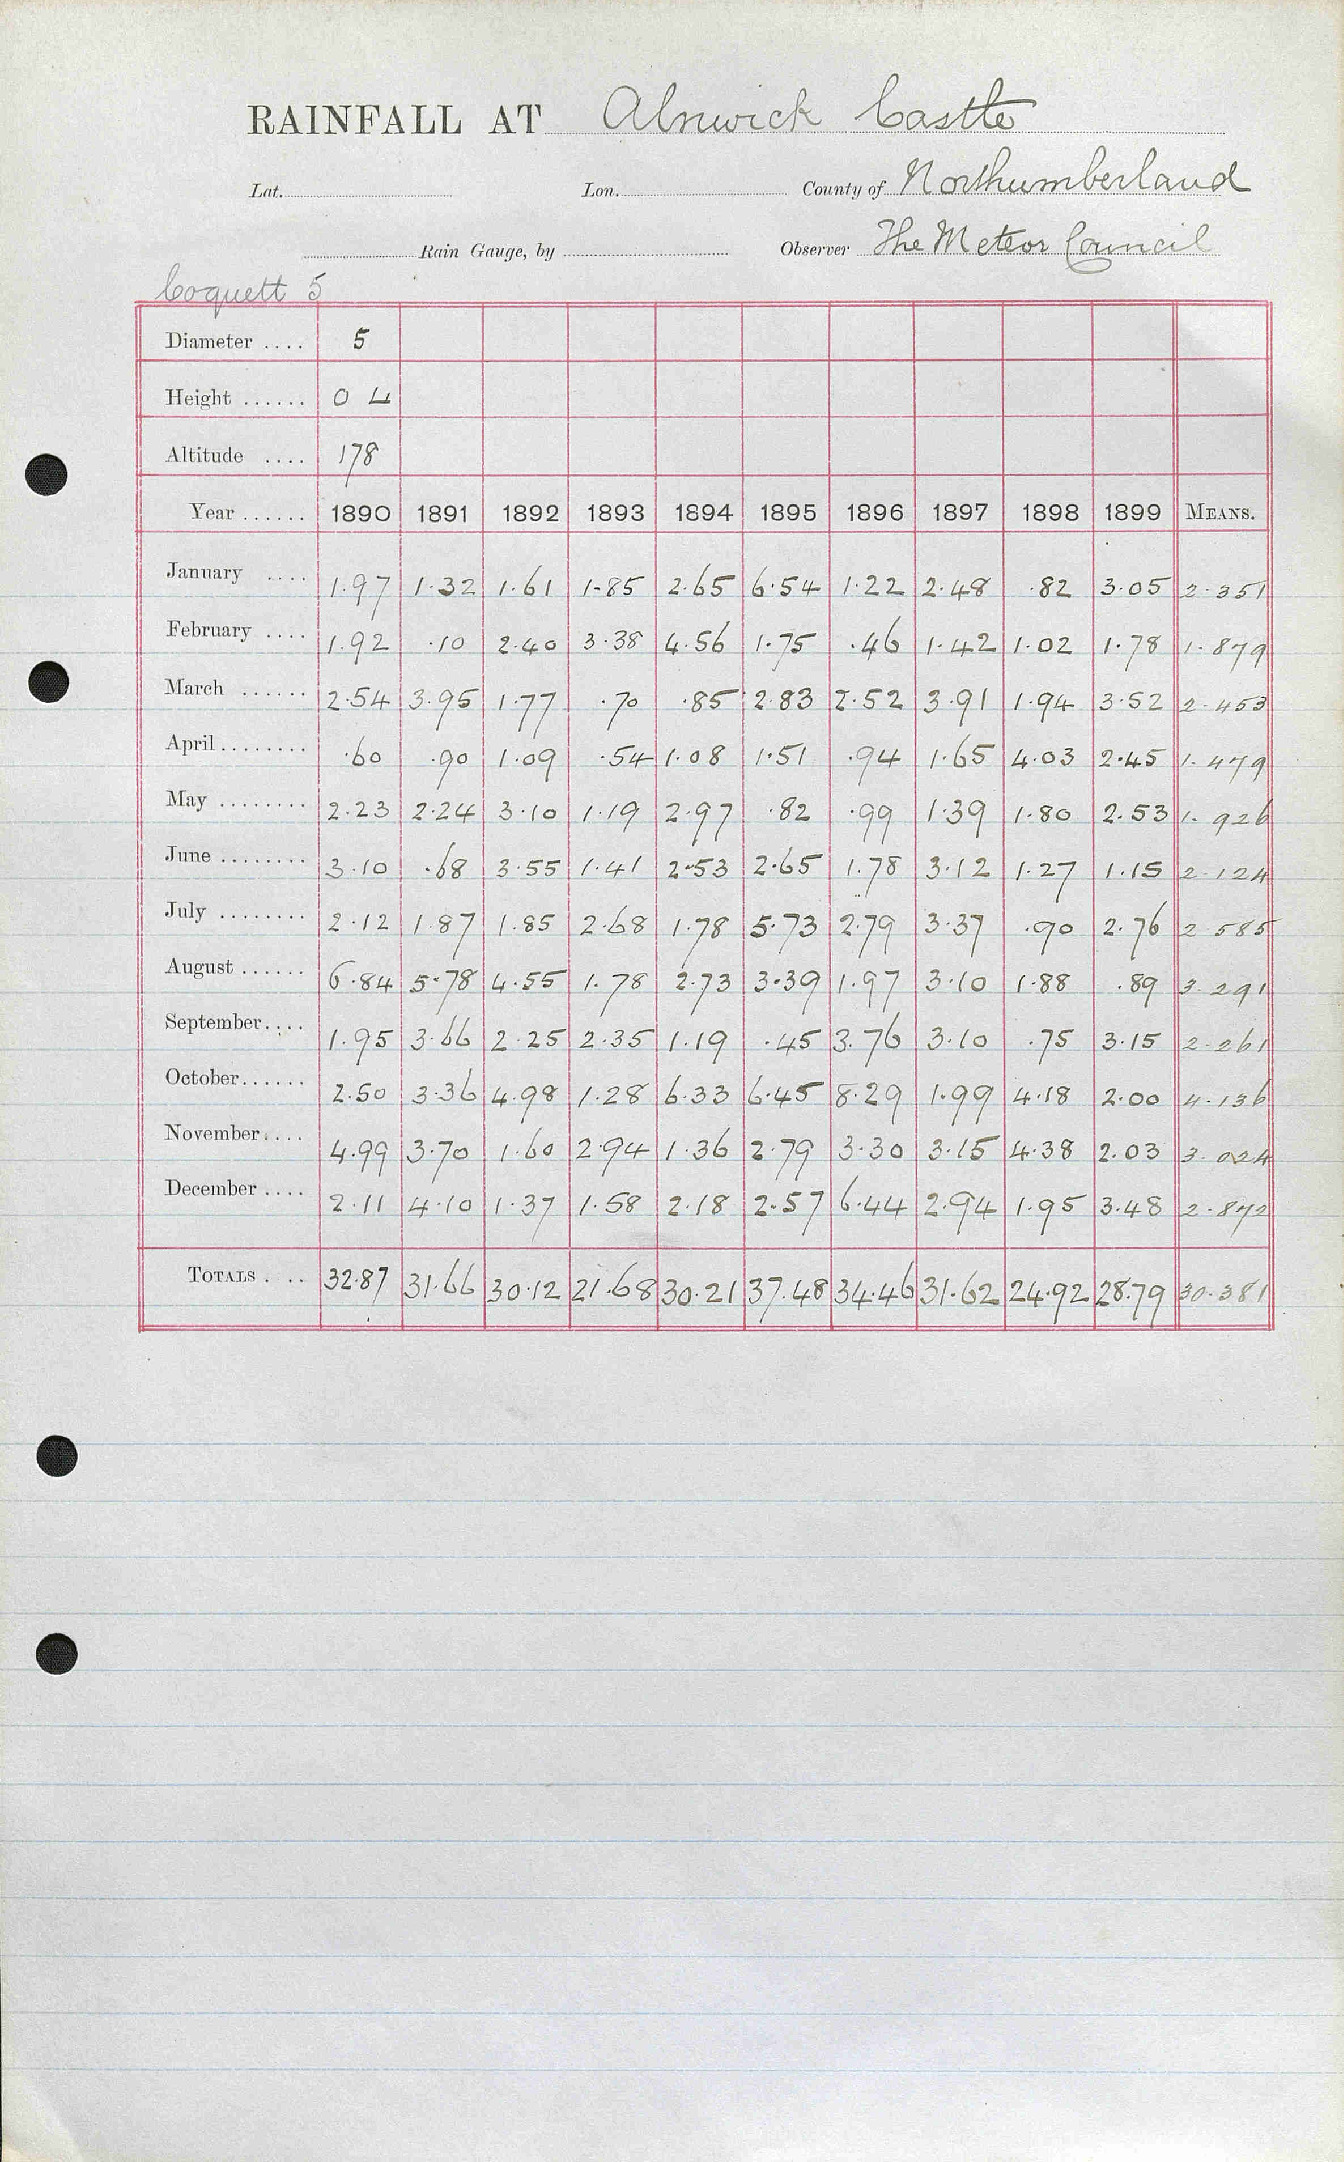 RAINFALL AT Alnwick Castle
Lat. Lon. County of Northumberland
Rain Gauge, by Observer The Meteor Council
Coquett 5
Diameter .... 5
Height ...... 0 4
Altitude .... 178
Year ...... 1890 1891 1892 1893 1894 1895 1896 1897 1898 1899 MEANS.
January .... 1.97 1.32 1.61 1.85 2.65 6.54 1.22 2.48 .82 3.05 2.351
February .... 1.92 .10 2.40 3.38 4.56 1.75 .46 1.42 1.02 1.78 1.879
March ...... 2.54 3.95 1.77 .70 .85 2.83 2.52 3.91 1.94 3.52 2.453
April ........ .60 .90 1.09 .54 1.08 1.51 .94 1.65 4.03 2.45 1.479
May ........ 2.23 2.24 3.10 1.19 2.97 .82 .99 1.39 1.80 2.53 1.926
June ........ 3.10 .68 3.55 1.41 2.53 2.65 1.78 3.12 1.27 1.15 2.124
July ........ 2.12 1.87 1.85 2.68 1.78 5.73 2.79 3.37 .90 2.76 2.585
August ...... 6.84 5.78 4.55 1.78 2.73 3.39 1.97 3.10 1.88 .89 3.291
September.... 1.95 3.66 2.25 2.35 1.19 .45 3.76 3.10 .75 3.15 2.261
October...... 2.50 3.36 4.98 1.28 6.33 6.45 8.29 1.99 4.18 2.00 4.136
November.... 4.99 3.70 1.60 2.94 1.36 2.79 3.30 3.15 4.38 2.03 3.024
December .... 2.11 4.10 1.37 1.58 2.18 2.57 6.44 2.94 1.95 3.48 2.872
TOTALS . .. 32.87 31.66 30.12 21.68 30.21 37.48 34.46 31.62 24.92 28.79 30.381